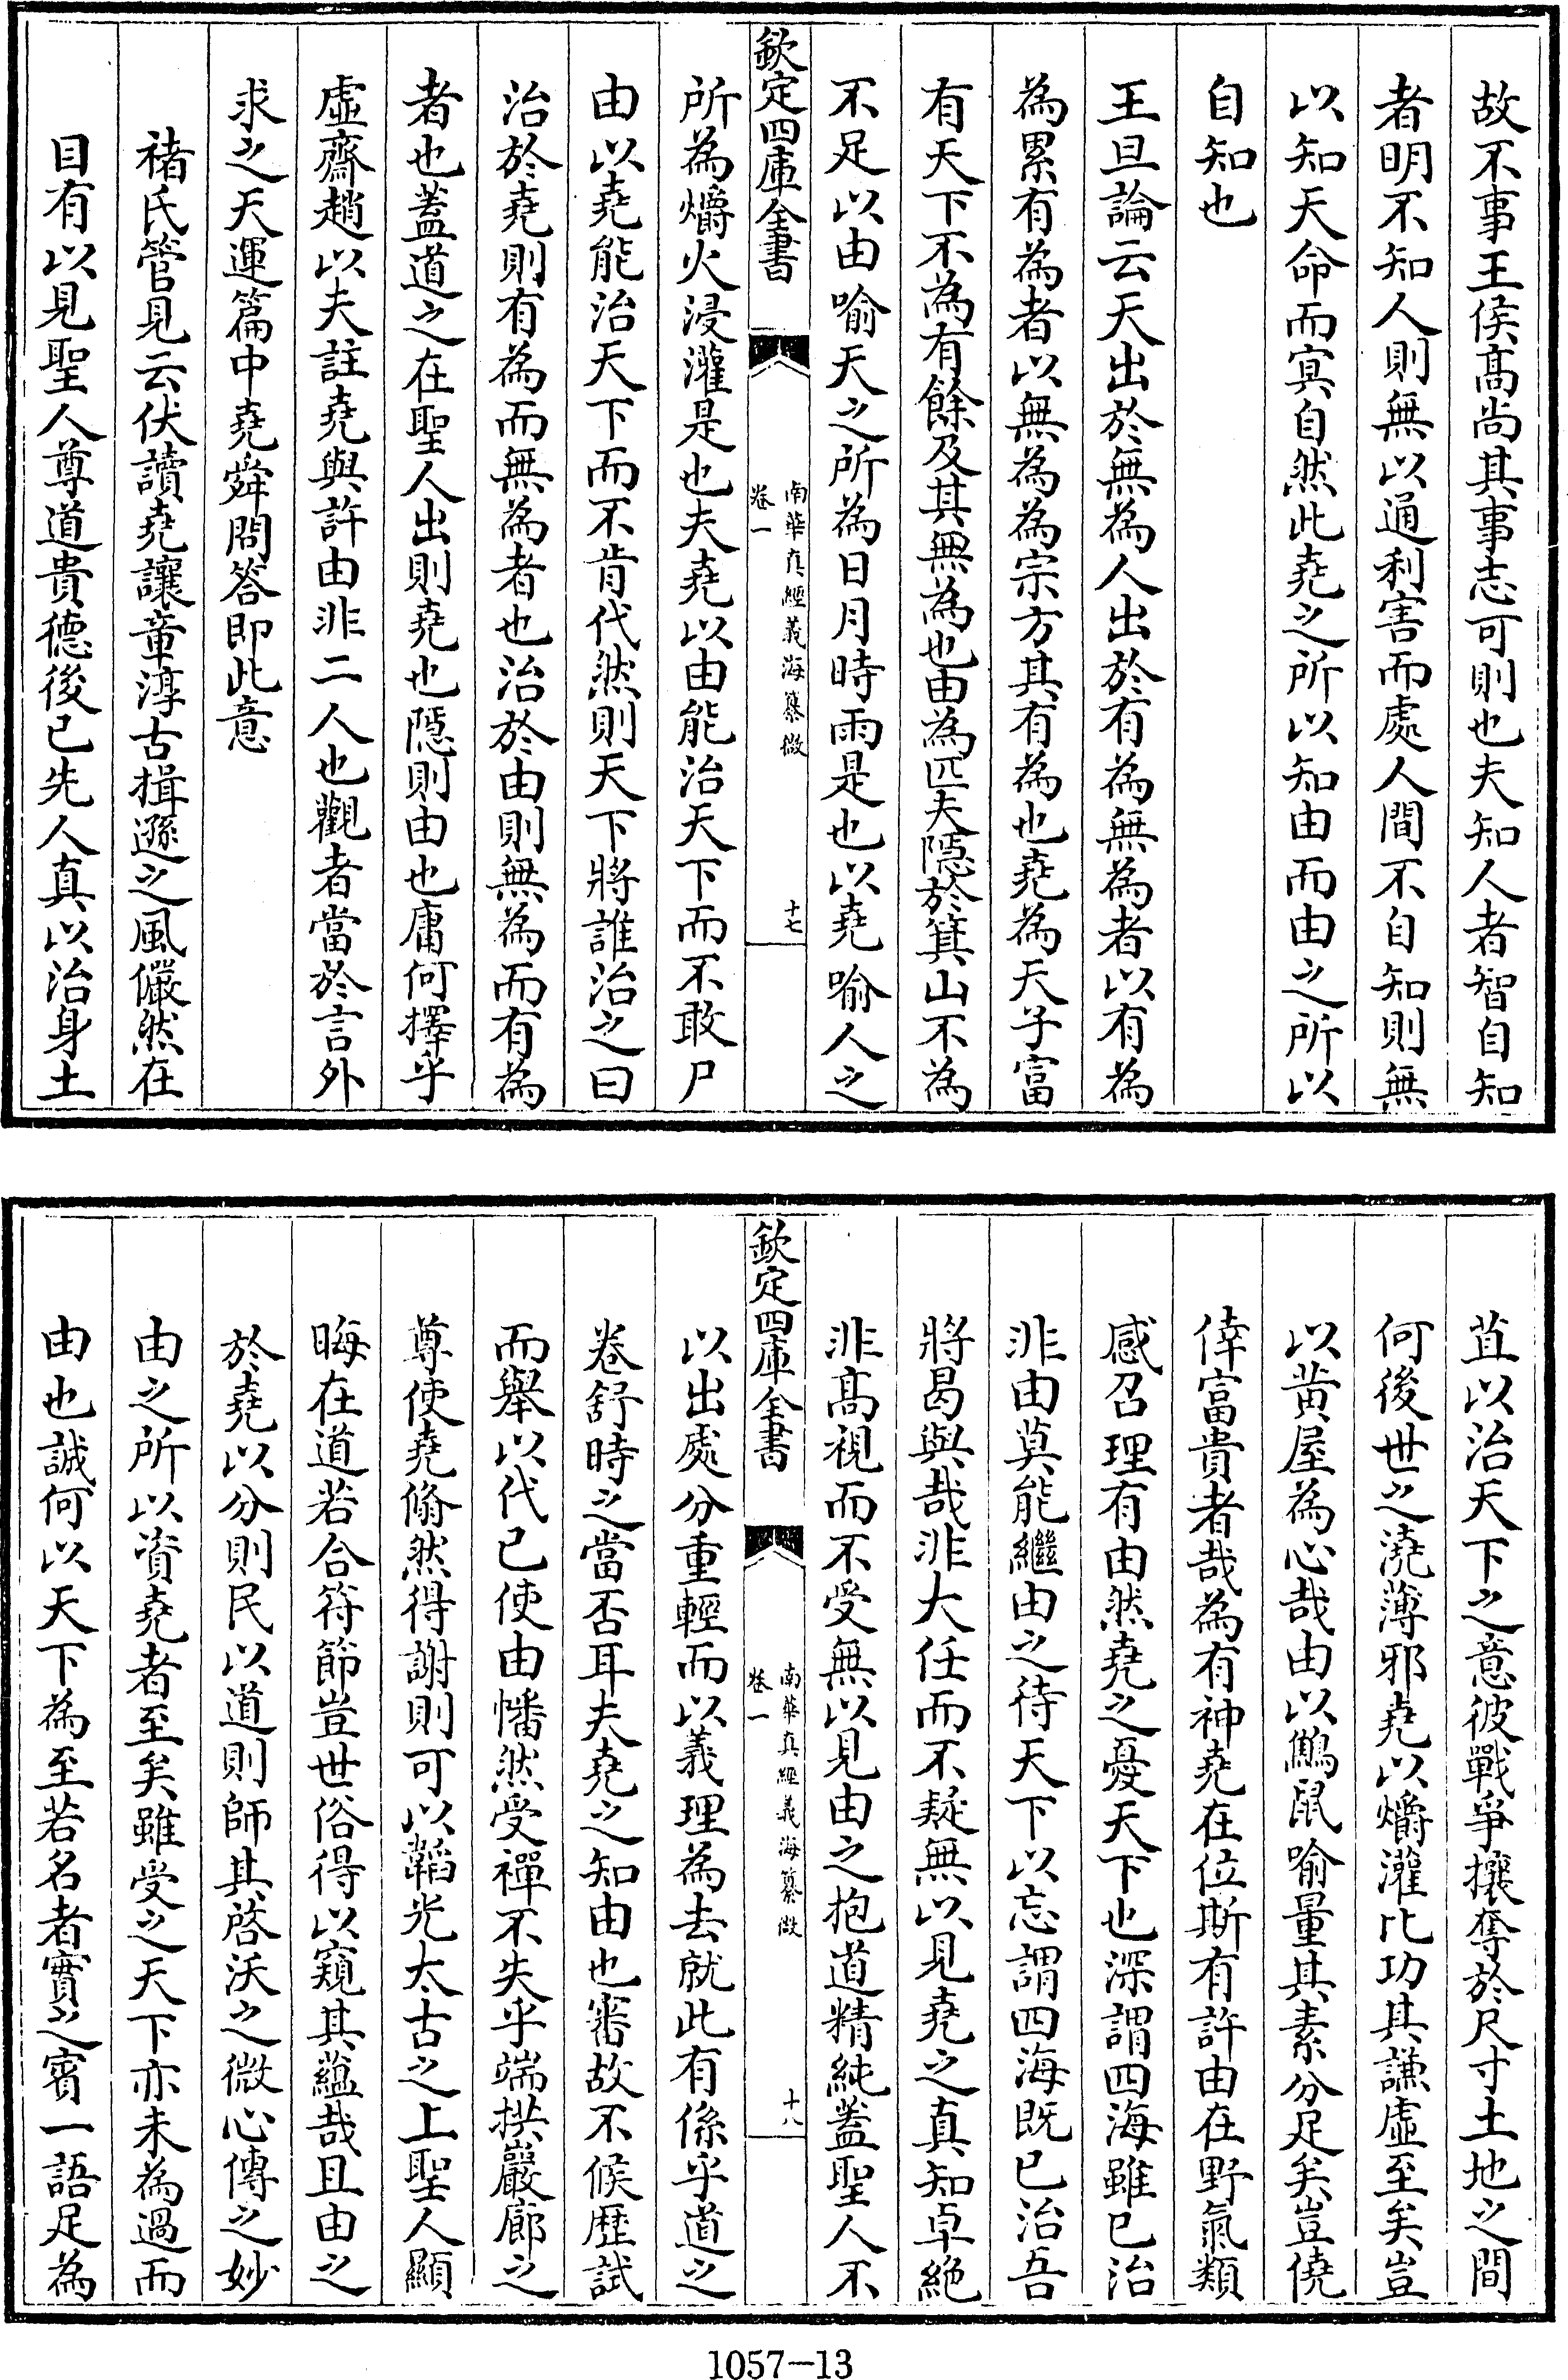 故不事王侯髙尚其事志可則也夫知人者智自知
者明不知人則無以通利害而處人間不自知則無
以知天命而㝠自然此堯之所以知由而由之所以
自知也
王旦論云天出於無為人出於有為無為者以有為
為累有為者以無為為宗方其有為也堯為天子富
有天下不為有餘及其無為也由為匹夫隱於箕山不為
不足以由喻天之所為日月時雨是也以堯喻人之
欽定四庫全書
南華真經義海纂微
卷一
十七
所為爝火浸灌是也夫堯以由能治天下而不敢尸
由以堯能治天下而不肯代然則天下將誰治之曰
治於堯則有為而無為者也治於由則無為而有為
者也蓋道之在聖人出則堯也隱則由也庸何擇乎
虛齋趙以夫註堯與許由非二人也觀者當於言外
求之天運篇中堯舜問答即此意
禇氏管見云伏讀堯讓章淳古揖遜之風儼然在
目有以見聖人尊道貴德後已先人真以治身土
苴以治天下之意彼戰爭攘奪於尺寸土地之間
何後世之澆薄邪堯以爝灌比功其謙虛至矣豈
以黄屋為心哉由以鷦鼠喻量其素分足矣豈僥
倖富貴者哉為有神堯在位斯有許由在野氣類
感召理有由然堯之憂天下也深謂四海雖已治
非由莫能繼由之待天下以忘謂四海既已治吾
將曷與哉非大任而不疑無以見堯之真知卓絶
非髙視而不受無以見由之抱道精純蓋聖人不
欽定四庫全書
南華真經義海纂微
卷一
十八
以出處分重輕而以義理為去就此有係乎道之
卷舒時之當否耳夫堯之知由也審故不候歴試
而舉以代已使由幡然受禪不失乎端拱巖廊之
尊使堯翛然得謝則可以韜光太古之上聖人顯
晦在道若合符節豈世俗得以窺其蘊哉且由之
於堯以分則民以道則師其啓沃之微心傳之妙
由之所以資堯者至矣雖受之天下亦未為過而
由也誠何以天下為至若名者實之賓一語足為
1057-13